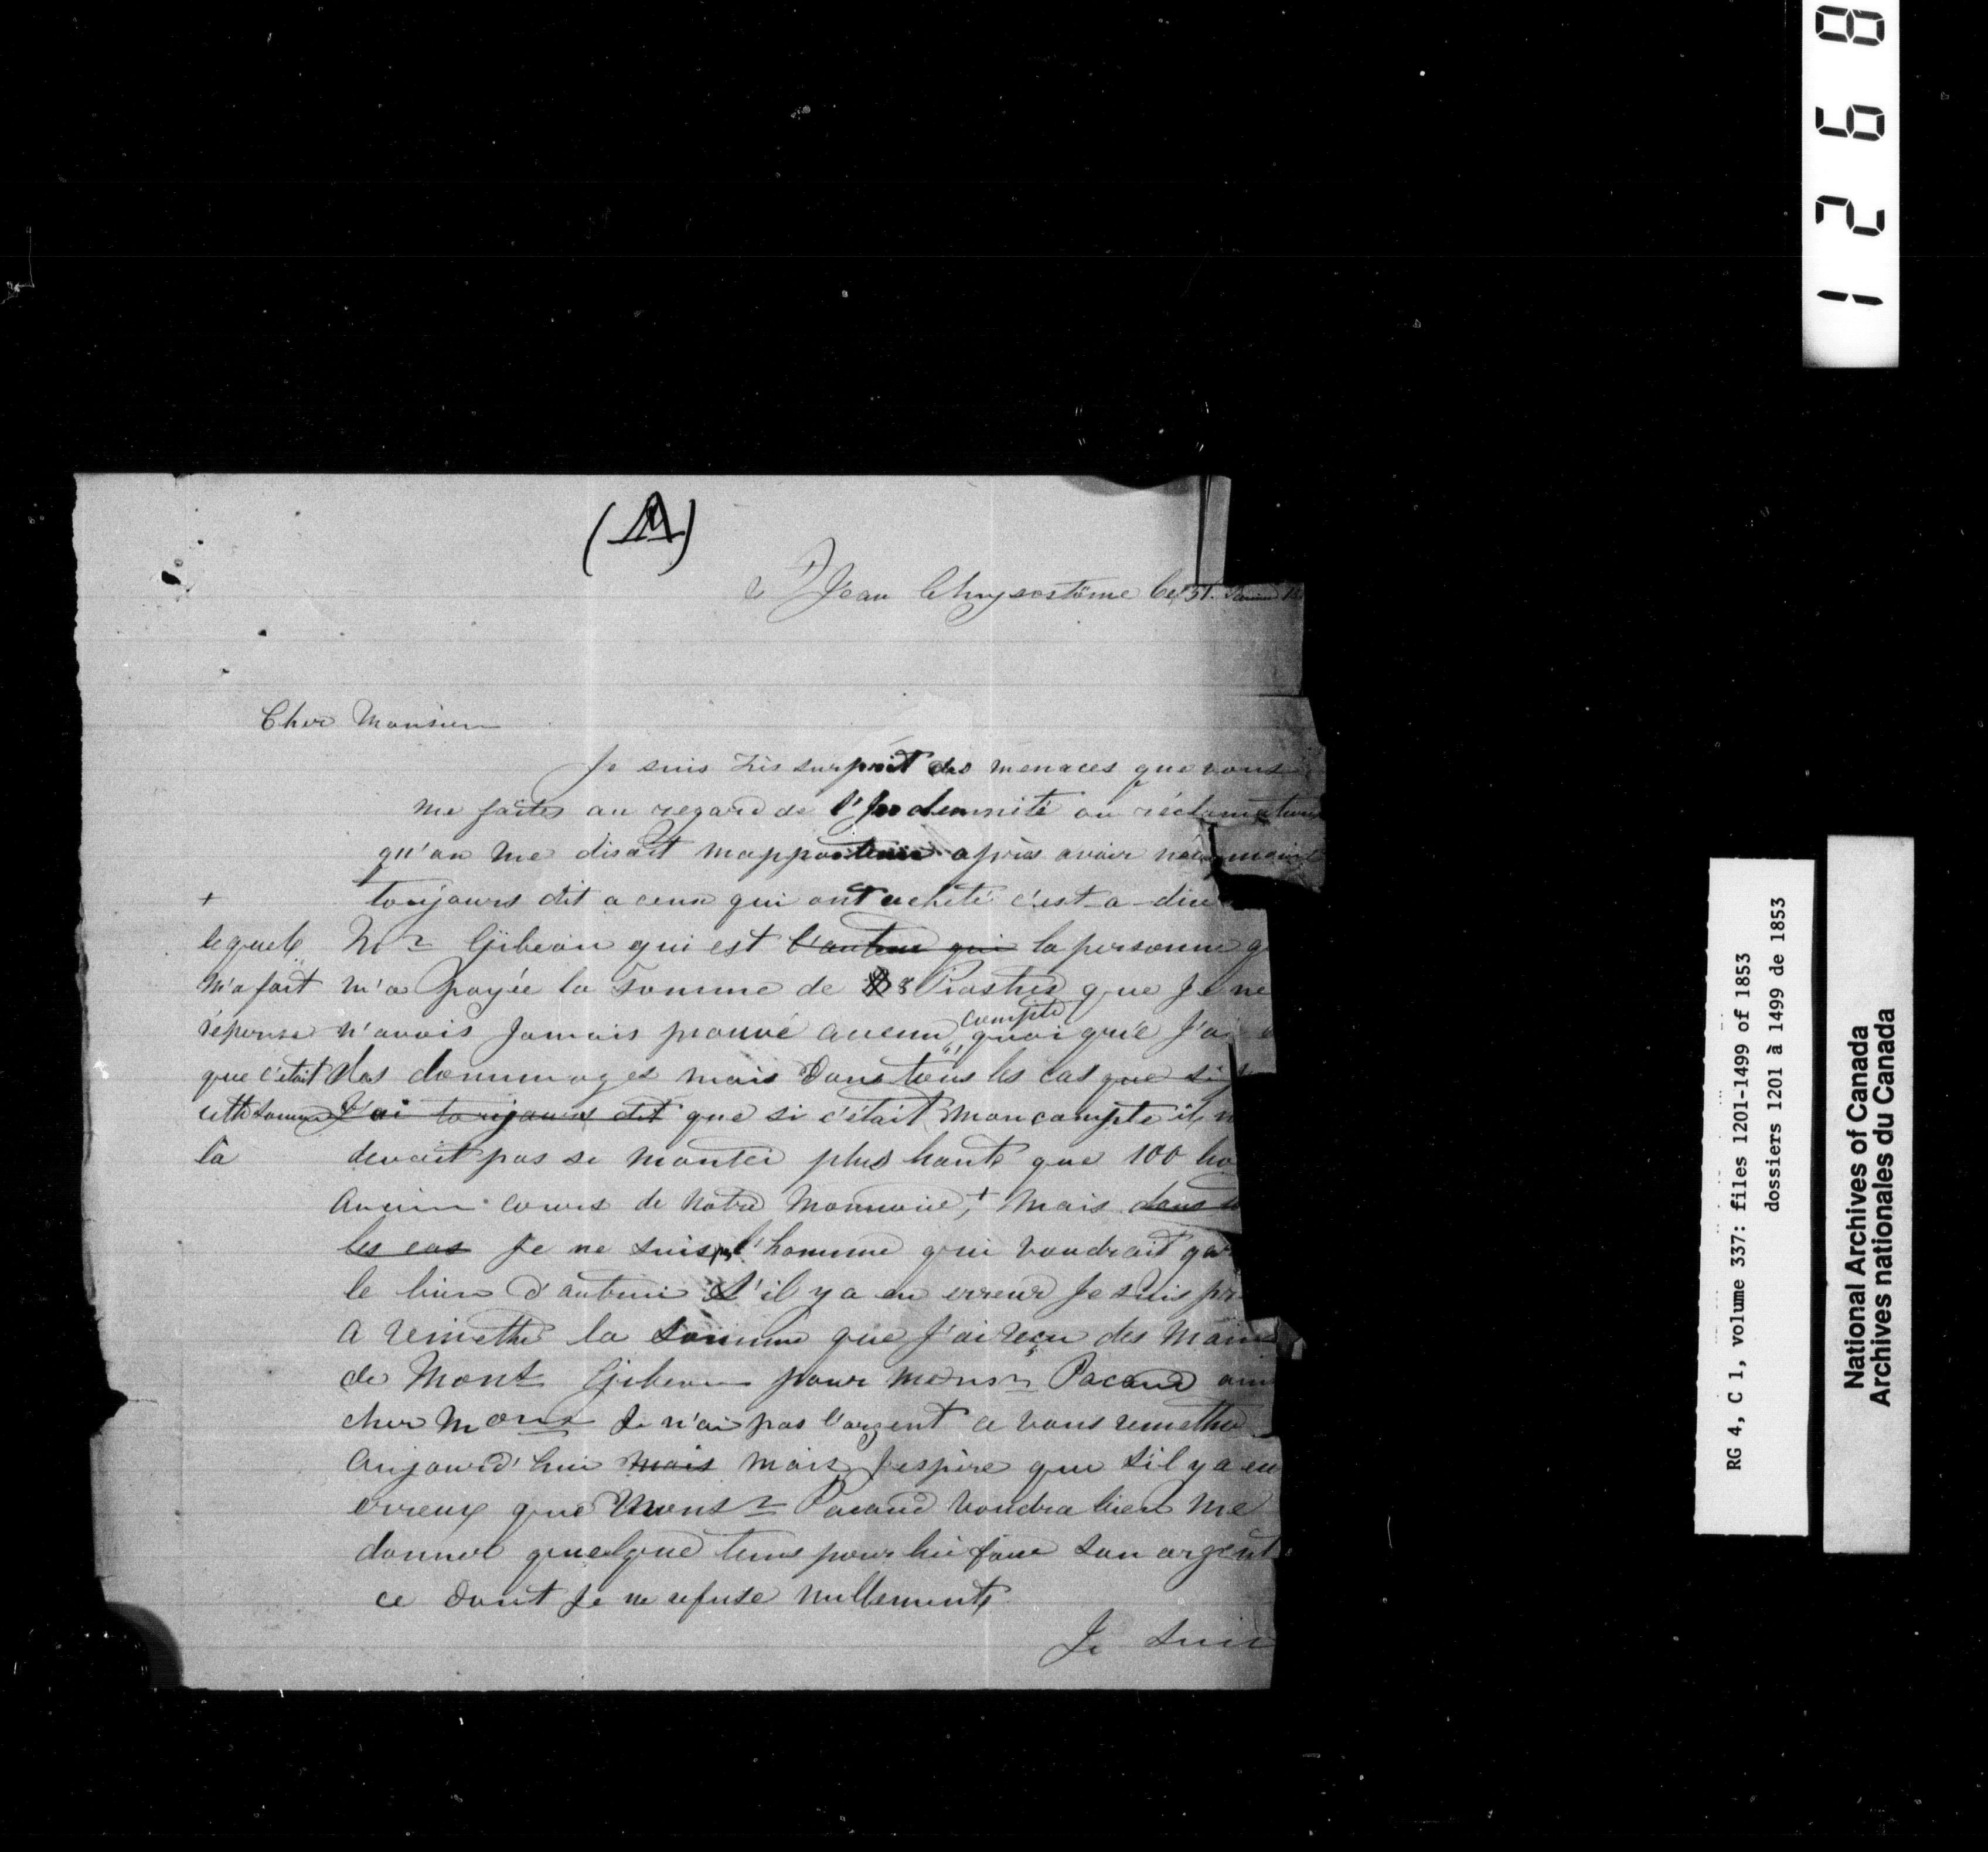 1268
(A)
St Jean Chrysostôme Ce 31. Janvier
Cher Monsieur
Je suis très surprit des menaces que vous
me faites au regard de l'Indemnité ou réclamations
qu'on me disait mappartenir après avoir néanmoins
toujours dit a ceux qui ont acheté c'est-a-dire
Mr Gibeau qui est l'auteur qui la personne q
m'a payée la somme de 8 Piastres que Je ne
n'avois Jamais prouvé aucun compte quoi que J'ai
des dommages mais Dans tous les cas que si
J'ai toujours dit que si c'était mon compte il n
devait pas se monter plus haute que 100
Ancien cours de notre Monnoie, + Mais dans
les cas Je ne suis pas l'homme qui voudrait gar
le bien d'autrui S'il y a eu erreur Je suis pr
A remettre la somme que J'ai reçu des Mains
de Monsr Gibeau pour monsr Pacaud
cher Monsr Je n'ai pas l'argent a vous remettre
Aujourd'hui mais mais J'espère que s'il y a eu
erreur que Monsr Pacaud voudra bien me
donner quelque tems pour lui faire son argent
ce dont Je ne refuse nullement
Je suis
+
lequel
m'a fait
réponse
que c'était
cette somme
là
RG 4, C 1, volume 337: files 1201-1499 of 1853
dossiers 1201 à 1499 de 1853
National Archives of Canada
Archives nationales du Canada